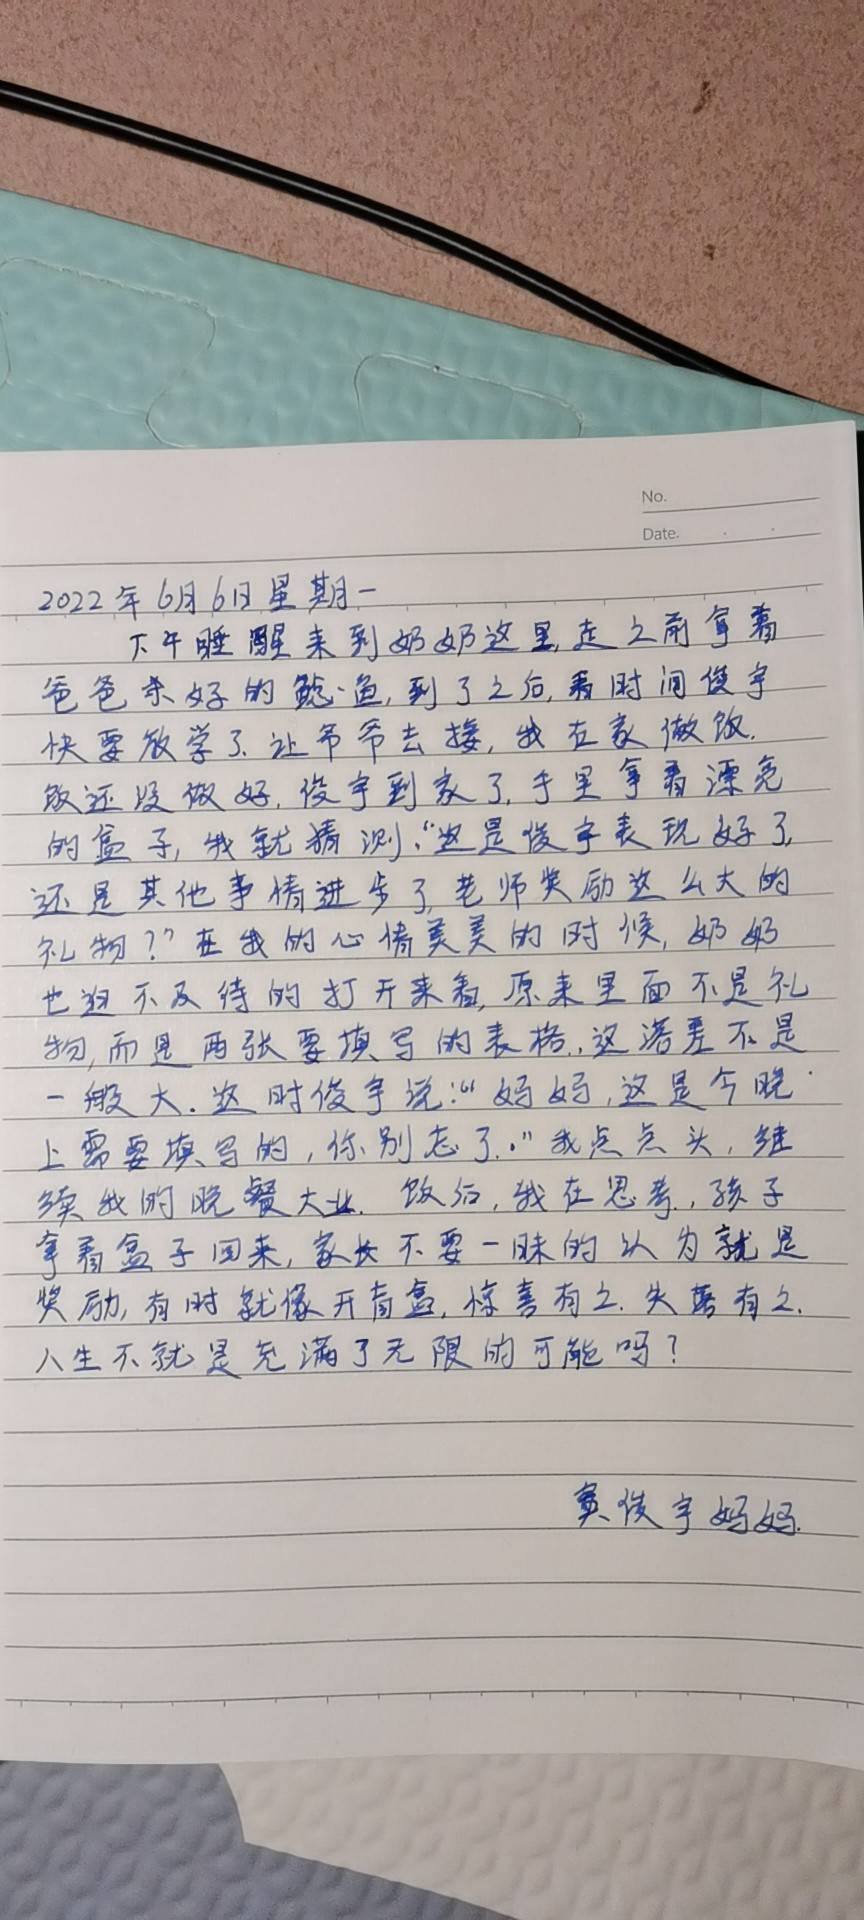 No.
Date.
2022年6月6日星期一
下午睡醒来到奶奶这里,走之前拿着
爸爸杀好的鲶鱼,到了之后,看时间俊宇
快要放学了.让爷爷去接,我在家做饭.
饭还没做好,俊宇到家了,手里拿着漂亮
的盒子,我就猜测:“这是俊宇表现好了,
还是其他事情进步了,老师奖励这么大的
礼物?”在我的心情美美的时候,奶奶
也迫不及待的打开来看,原来里面不是礼
物,而是两张要填写的表格,这落差不是
一般大.这时俊宇说:“妈妈,这是今晚
上需要填写的,你别忘了.”我点点头,继
续我的晚餐大业.饭后,我在思考,孩子
拿着盒子回来,家长不要一昧的认为就是
奖励,有时就像开盲盒,惊喜有之.失落有之.
人生不就是充满了无限的可能吗?
俊宇妈妈.